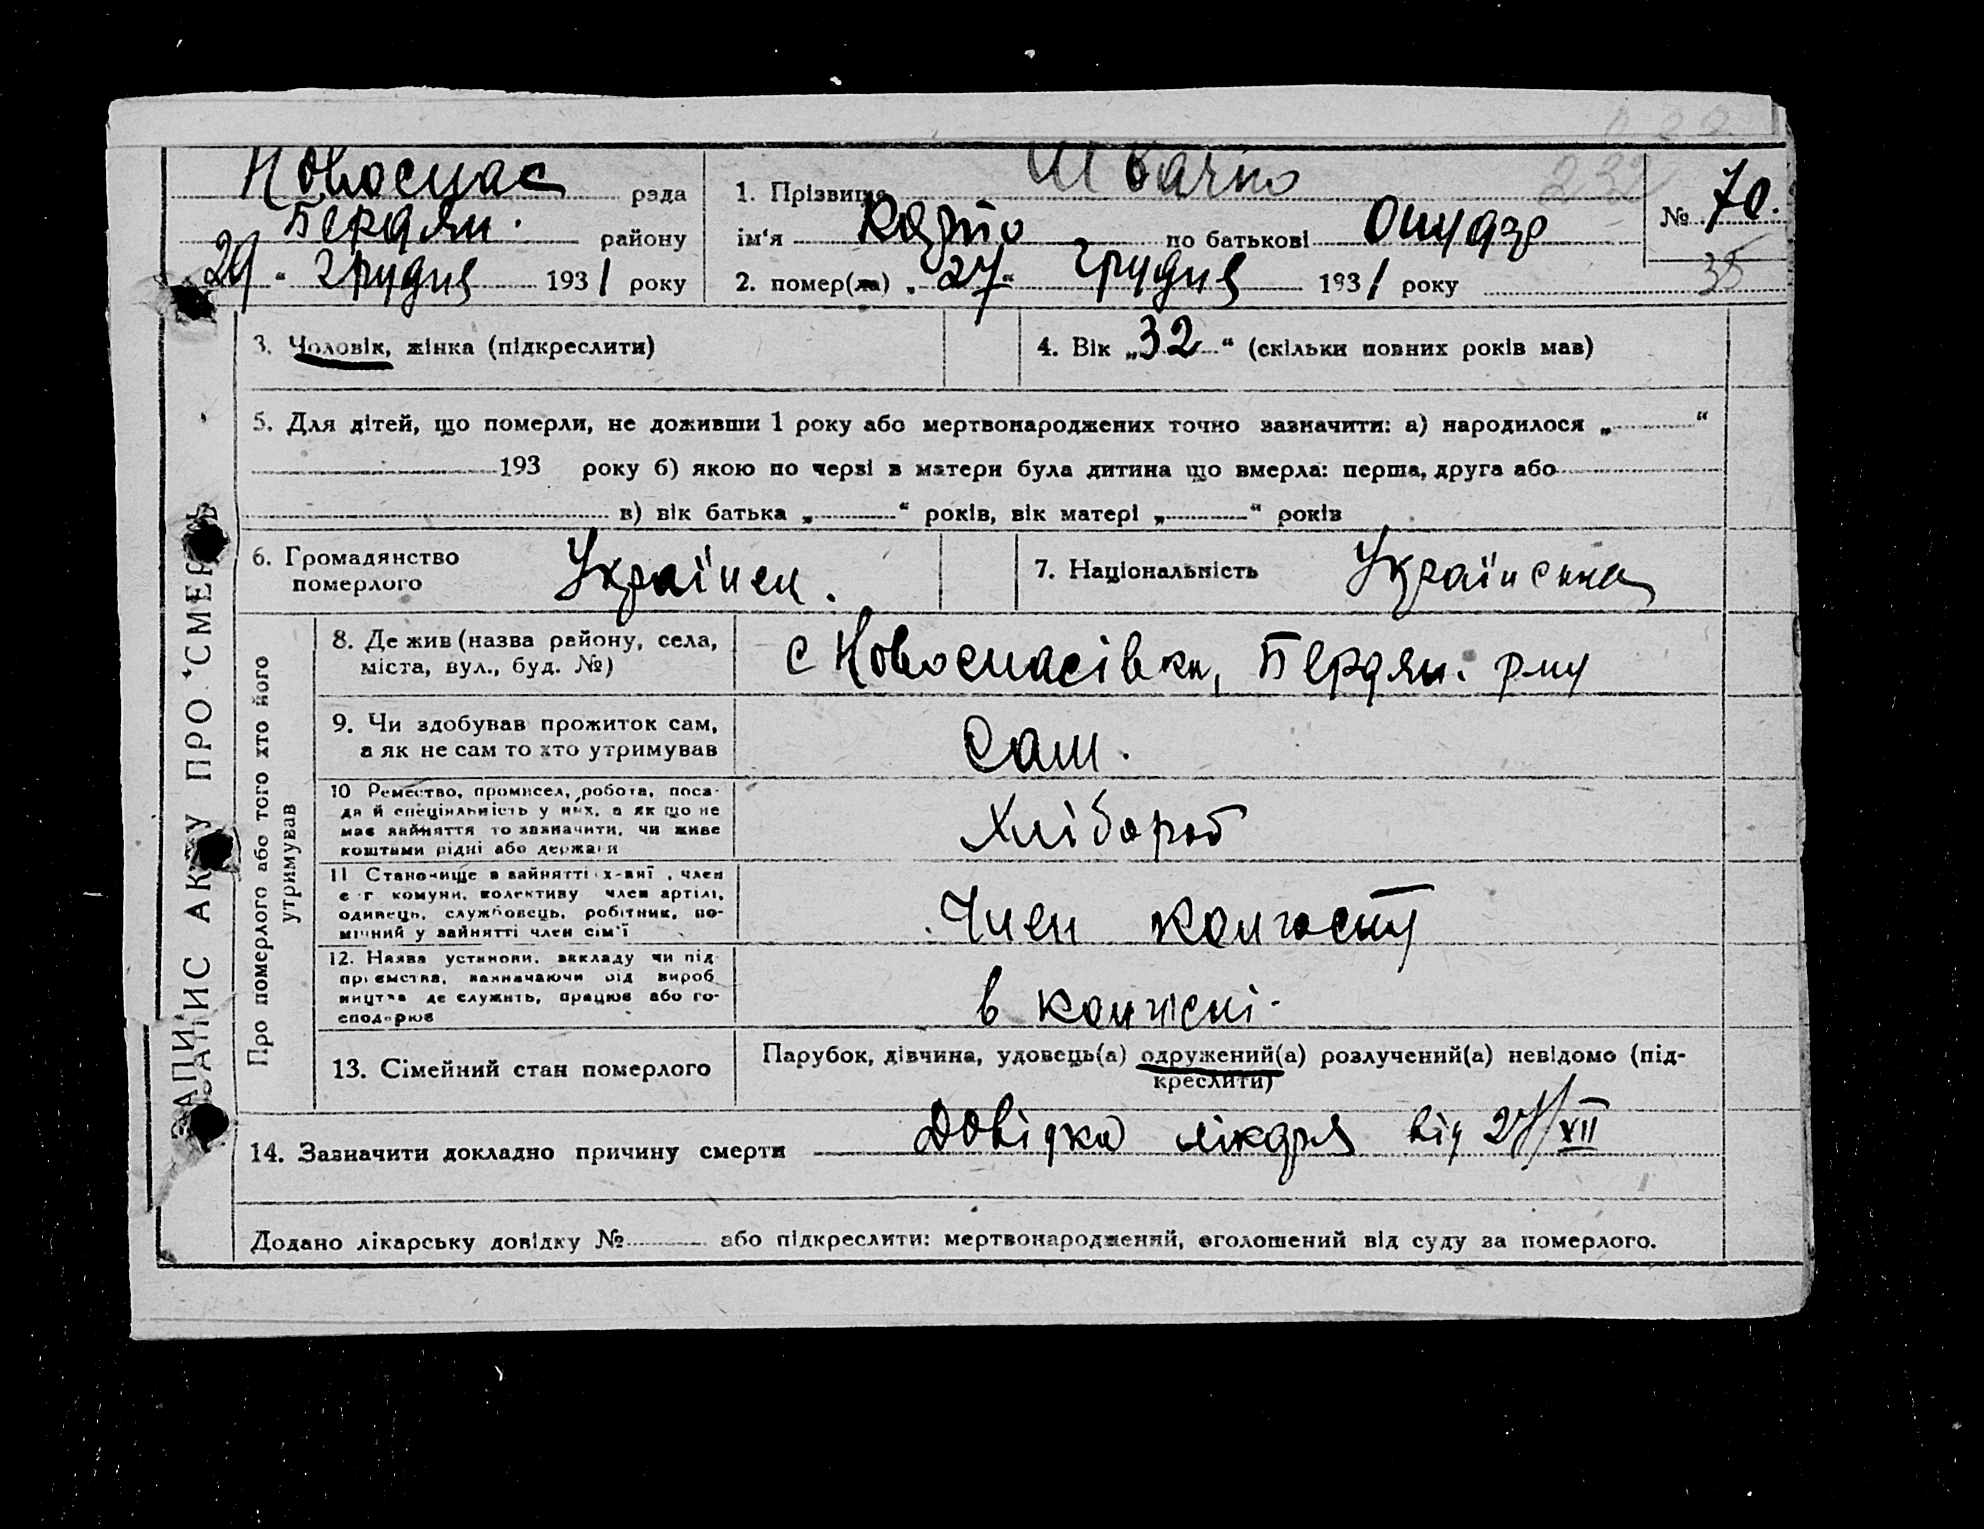 Новоспас рада
Бердян. району
29 " грудня 1931 року
1. Прізвище Швачко
ім'я по батькові
2. помер(ла) „ 27 " грудня 1931 року
№ 70.
232
35
3. Чоловік, жінка (підкреслити)
4. Вік „ 32 " (скільки повних років мав)
5. Для дітей, що померли, не доживши 1 року або мертвонароджених точно зазначити: а) народилося „ "
193 року б) якою по черзі в матери була дитина що вмерла: перша, друга або
в) вік батька „ " років, вік матері „ " років
6. Громадянство
померлого
Українец.
7. Національність Українська
ЗАПИС АКТУ ПРО СМЕРТЬ
Про померлого або того хто його
утримував
8. Де жив (назва району, села,
міста, вул., буд. №)
с Новоспасівка, Бердян. р-ну
9. Чи здобував прожиток сам,
а як не сам то хто утримував
Сам.
10 Ремество, промисел, робота, поса-
да й спеціяльність у них, а як що не
має зайняття то зазначити, чи живе
коштами рідні або держави
Хлібороб
11 Становище в зайнятті х-вні , член
с-г комуни, колективу член артілі,
одинець, службовець, робітник, по-
мічний у зайнятті член сім'ї
Член колгоспу
12. Назва установи, закладу чи під
приємства, зазначаючи від вироб
ництва де служить, працює або го-
сподарює
в колгоспі.
13. Сімейний стан померлого
Парубок, дівчина, удовець(а) одружений(а) розлучений(а) невідомо (під-
креслити)
14. Зазначити докладно причину смерти Довідка лікаря від 27/XII
Додано лікарську довідку № або підкреслити: мертвонароджений, оголошений від суду за померлого.